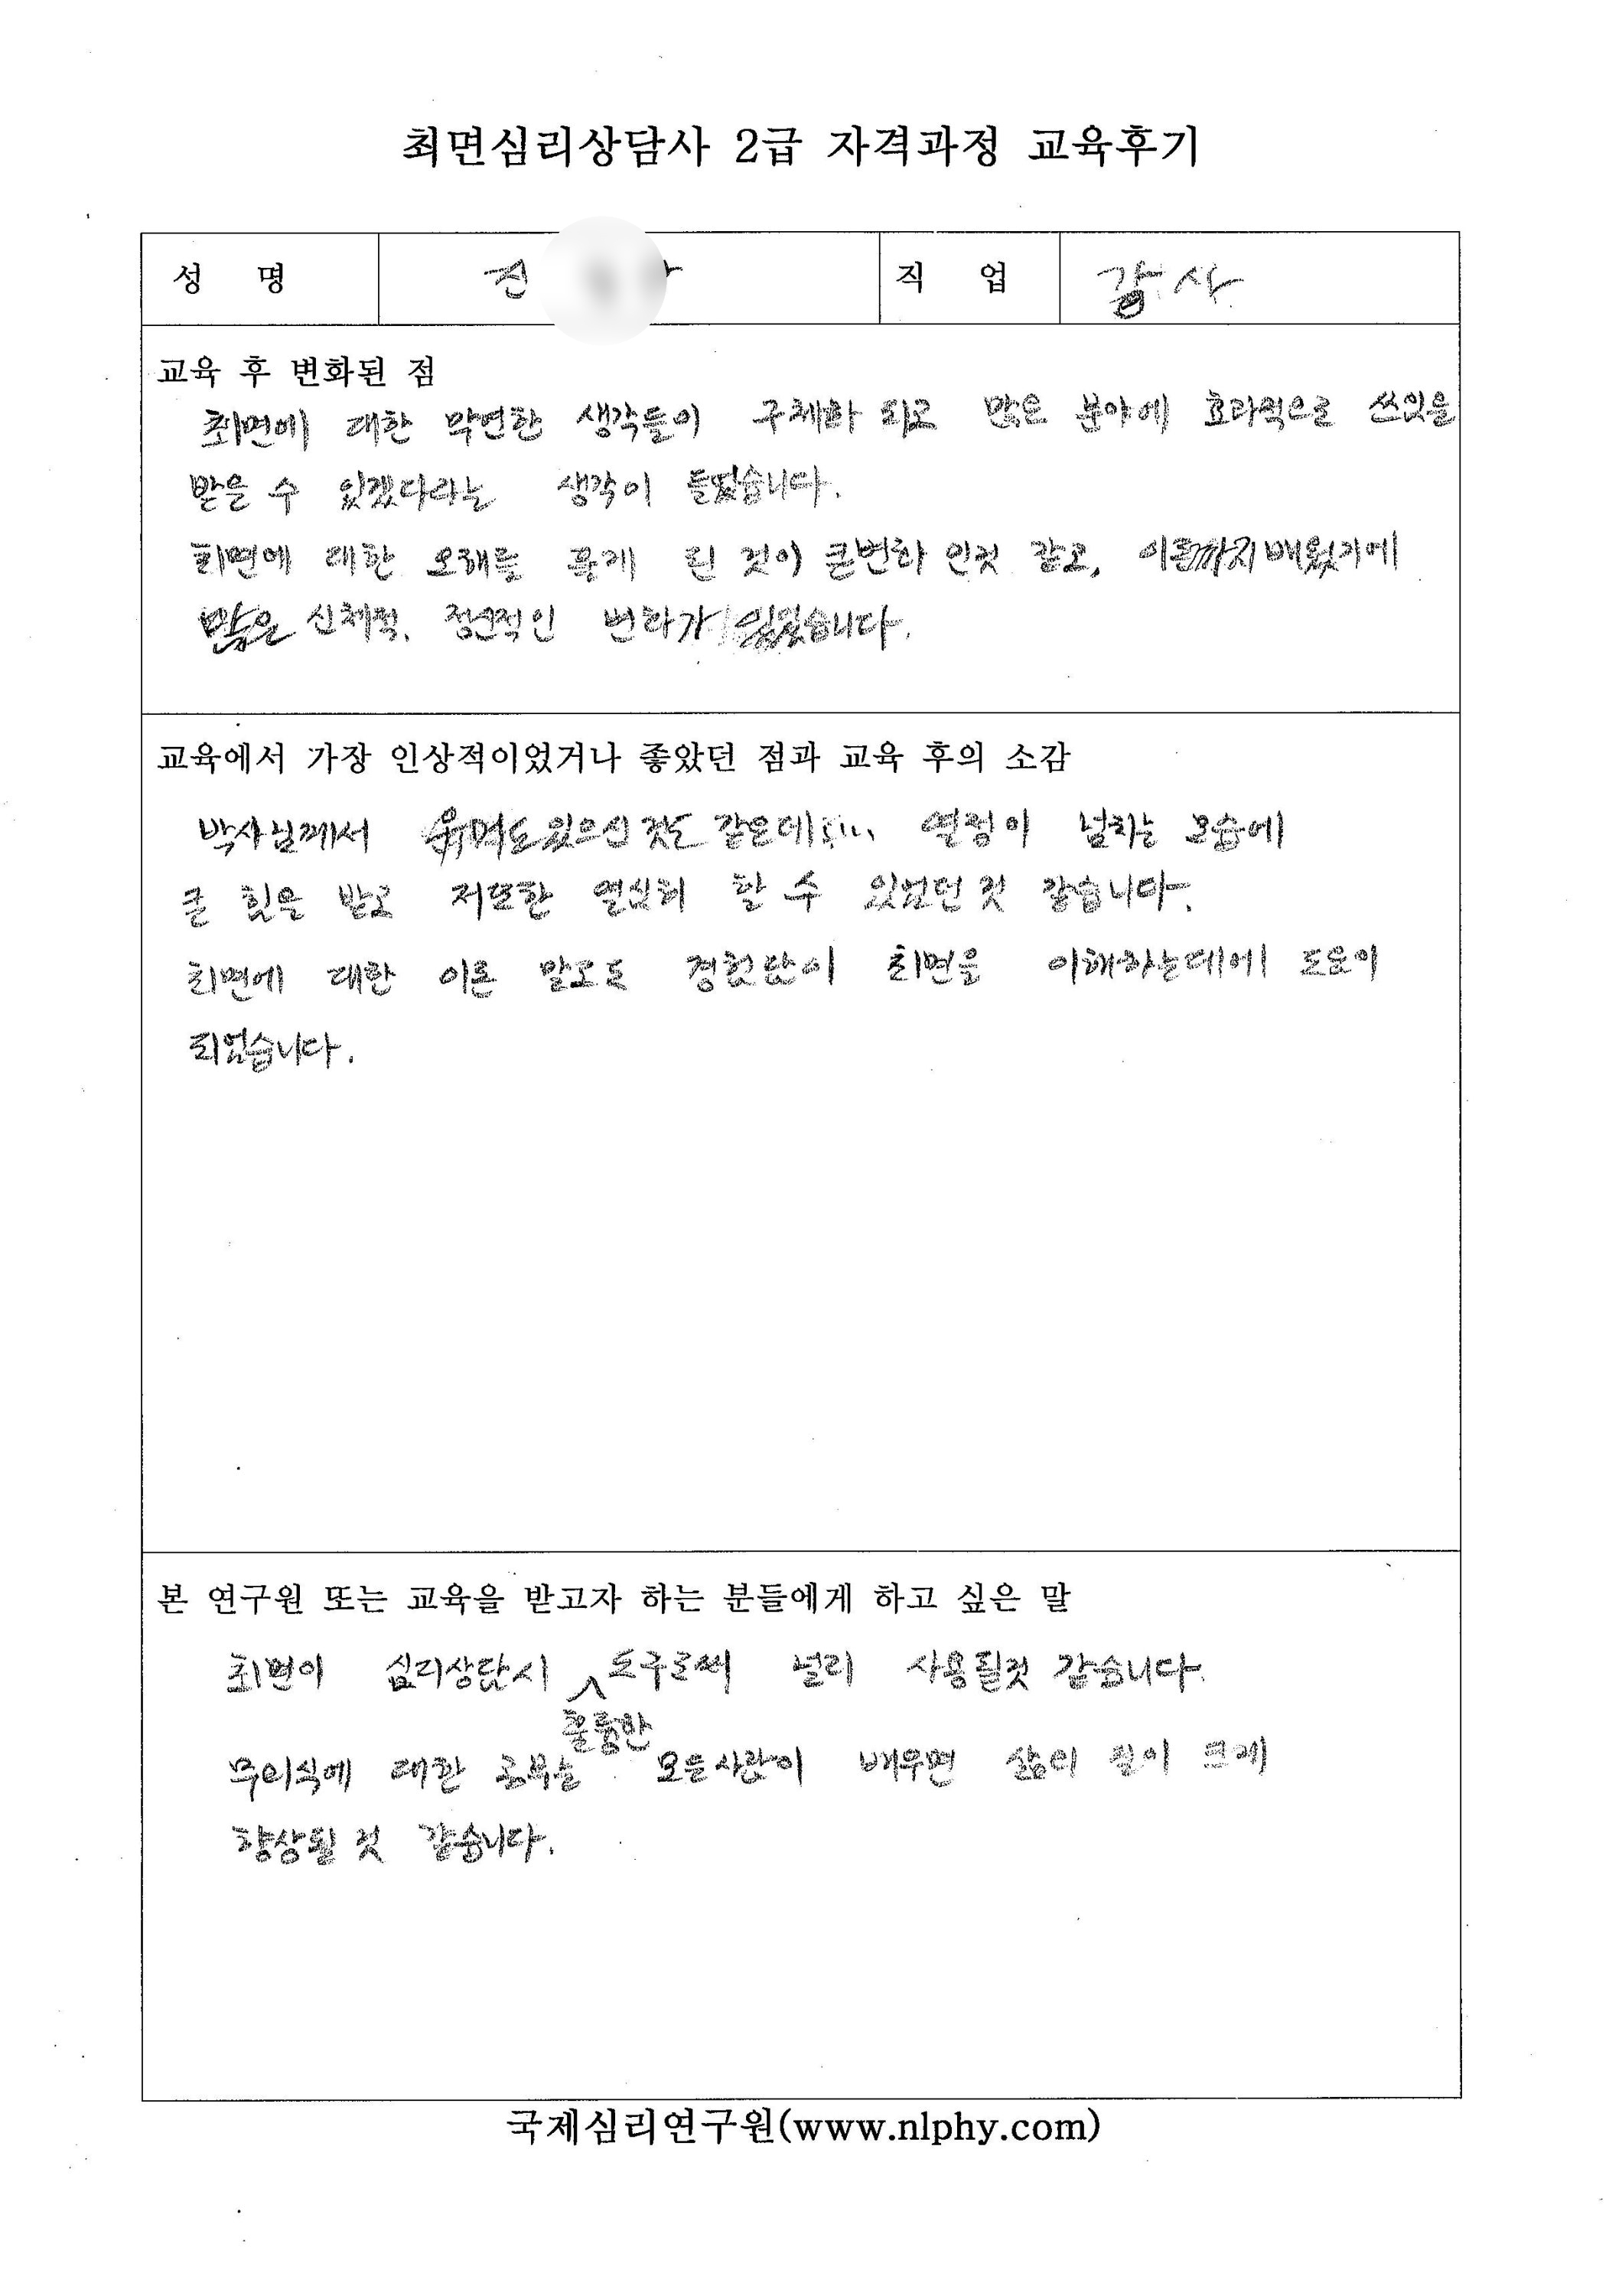 최면심리상담사 2급 자격과정 교육후기
성 명 전 직 업 강사
교육 후 변화된 점
최면에 대한 막연한 생각들이 구체화 되고 많은 분야에 효과적으로 쓰임을
받을 수 있겠다라는 생각이 들었습니다.
최면에 대한 오해를 풀게 된 것이 큰변화 인것 같고, 이론까지 배웠기에
많은 신체적, 정신적인 변화가 있었습니다.
교육에서 가장 인상적이었거나 좋았던 점과 교육 후의 소감
박사님께서 유머도 있으신 것도 같은데 열정이 넘치는 모습에
큰 힘을 받고 저또한 열심히 할 수 있었던 것 같습니다.
최면에 대한 이론 말고도 경험담이 최면을 이해하는데에 도움이
되었습니다.
본 연구원 또는 교육을 받고자 하는 분들에게 하고 싶은 말
최면이 심리상담시 도구로써 널리 사용될것 같습니다.
훌륭한
무의식에 대한 공부는 모든사람이 배우면 삶의 질이 크게
향상될 것 같습니다.
국제심리연구원(www.nlphy.com)